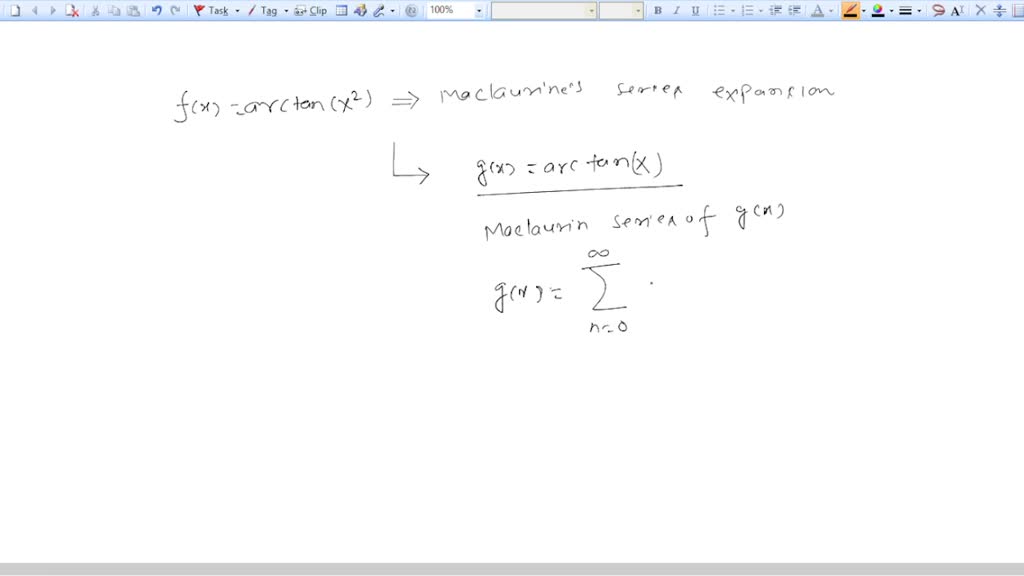 Task Tag Clip 100% B I U A A
f(x) = arctan(x²) ⇒ Maclaurine's series expansion
g(x) = arc tan(x)
Maclaurin series of g(x)
g(x) = ∞ ∑ n=0